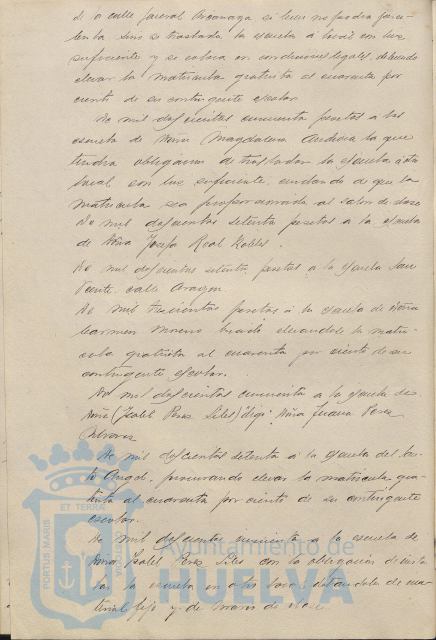 de la calle
si bien no podrá
se traslada la escuela a local con luz
suficiente y se coloca en condiciones legales, debiendo
elevar la matricula gratuita al cuarenta por
ciento de su contingente escolar.
De mil doscientas cincuenta pesetas a la
escuela de Doña Magdalena la que
tendrá obligacion de trasladar la escuela a otro
local con luz suficiente, cuidando de que la
matricula sea proporcionada al salon de clase
De mil doscientas setenta pesetas a la escuela
de Doña Josefa Real Robles.
De mil doscientas setenta pesetas a la escuela San
Vicente calle Aragon
De mil trescientas pesetas á la escuela de Doña
Carmen Moreno elevando la matri-
cula gratuita al cuarenta por ciento de su
contingente escolar.
De mil doscientas cincuenta a la escuela de
Doña (Isabel Perez Liles) digo Doña Juana Perez
De mil doscientas setenta á la escuela del San-
to Angel, procurando elevar la matricula gra-
tuita al cuarenta por ciento de su contingente
escolar.
De mil doscientas cincuenta a la escuela de
Doña Isabel Perez Liles con la obligacion de insta-
lar la escuela en otro local, dotandola de ma-
terial fijo y de clase
PORTUS MARIS
ET TERRÆ
CUSTODIA
Ayuntamiento de
HUELVA